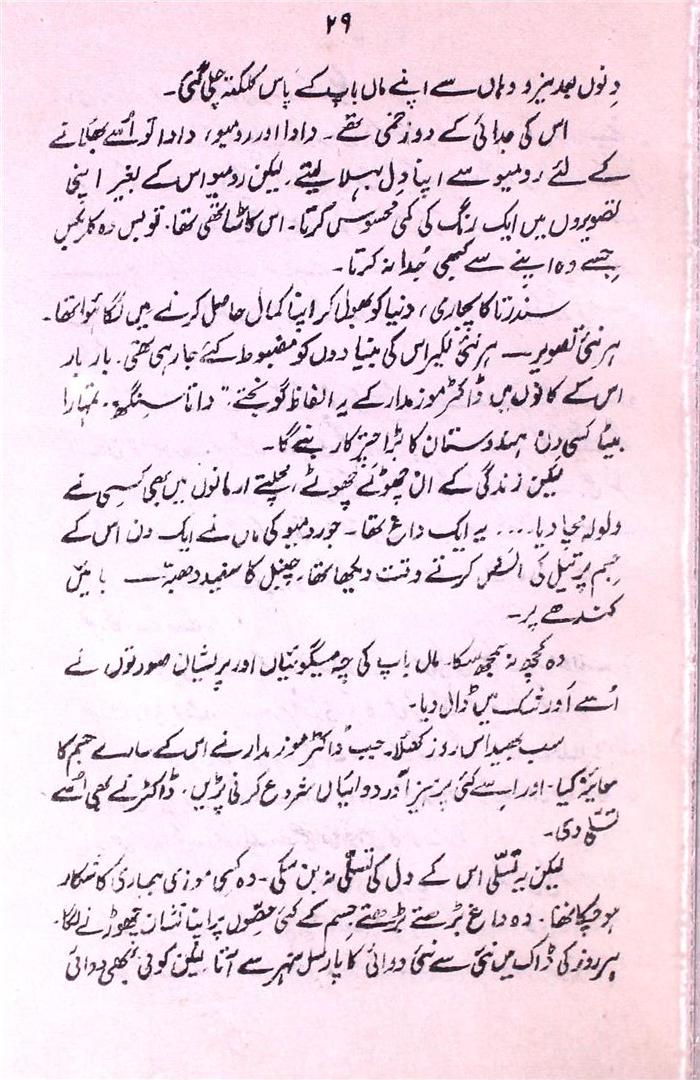 ۲۹
دنوں بعد میزو وہاں سے اپنے ماں باپ کے پاس کلکتہ چلی گئی۔
اس کی جدائی کے دو زخمی تھے۔ دادا اور رومیو، دادا تو اُسے بھلانے
کے لئے رومیو سے اپنا دل بہلا لیتے، لیکن رومیو اس کے بغیر اپنی
تصویروں میں ایک رنگ کی کمی محسوس کرتا۔ اس کا ساتھی تھا۔ تو بس وہ
جسے وہ اپنے سے کبھی جُدا نہ کرتا۔
سندرتا کا پجاری، دنیا کو بھول کر اپنا کمال حاصل کرنے میں لگا ہوا تھا۔
ہر نئی تصویر — ہر نئی لکیر اس کی بنیادوں کو مضبوط کئے جا رہی تھی۔ بار بار
اس کے کانوں میں ڈاکٹر موزمدار کے یہ الفاظ گونجتے۔ "داتا سنگھ۔ تمہارا
بیٹا کسی دن ہندوستان کا بڑا چترکار بنے گا۔
لیکن زندگی کے ان چھوٹے چھوٹے مچلتے ارمانوں میں بھی کسی نے
ولولہ مچا دیا .... یہ ایک داغ تھا۔ جو رومیو کی ماں نے ایک دن اس کے
جسم پر تیل کی کرتے وقت دیکھا تھا۔ چنبل کا سفید دھبہ — بائیں
کندھے پر۔
وہ کچھ نہ سمجھ سکا۔ ماں باپ کی چہ میگوئیاں اور پریشان صورتوں نے
اُسے اَور شک میں ڈال دیا۔
سب بھید اس روز کھُلا۔ جب ڈاکٹر موزمدار نے اس کے سارے جسم کا
معائنہ کیا۔ اور اسے کئی پرہیز اَور دوائیاں شروع کرنی پڑیں۔ ڈاکٹر نے بھی اُسے
تسلّی دی۔
لیکن یہ تسلّی اس کے دل کی تسلّی نہ بن سکی۔ وہ کسی موزی بیماری کا شکار
ہو چکا تھا۔ وہ داغ بڑھتے بڑھتے جسم کے کئی حصّوں پر اپنا نشان چھوڑنے لگا۔
ہر روز کی ڈاک میں نئی سے نئی دوائی کا پارسل شہر سے آتا۔ لیکن کوئی بھی دوائی